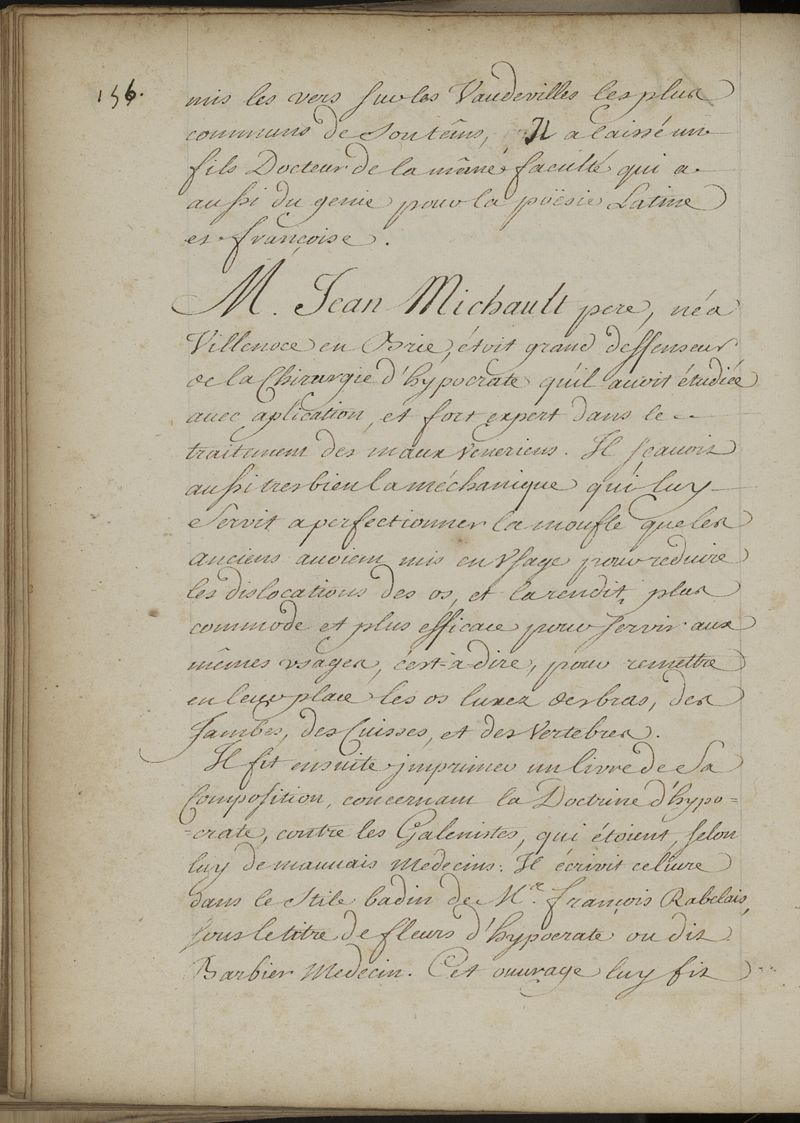 156.
mis les vers sur les Vaudevilles les plus
communs de son têms, Il a laissé un
fils Docteur de la même faculté qui a
aussi du genie pour la poësie Latine
et françoise.
M. Jean Michault pere, né a
Villenoce en Brie, étoit grand deffenseur
de la Chirurgie d'hypocrate qu'il avoit étudiée
avec aplication, et fort expert dans le
traitement des maux veneriens. Il sçavoit
aussi tres bien la méchanique qui luy
servit a perfectionner la moufle que les
anciens avoient mis en Usage pour reduire
les dislocations des os, et la rendit, plus
commode et plus efficace pour servir aux
mêmes usages, c'est-à-dire, pour remettre
en leur place les os luxez des bras, des
Jambes, des Cuisses, et des vertebres.
Il fit ensuite jmprimer un livre de sa
Composition, concernant la Doctrine d'hypo=
=crate, contre les Galenistes, qui étoient selon
luy de mauvais medecins. Il écrivit ce livre
dans le Stile badin de Mre. françois Rabelais,
sous le titre de fleurs d'hypocrate ou dit
Barbier Medecin. Cet ouvrage luy fit